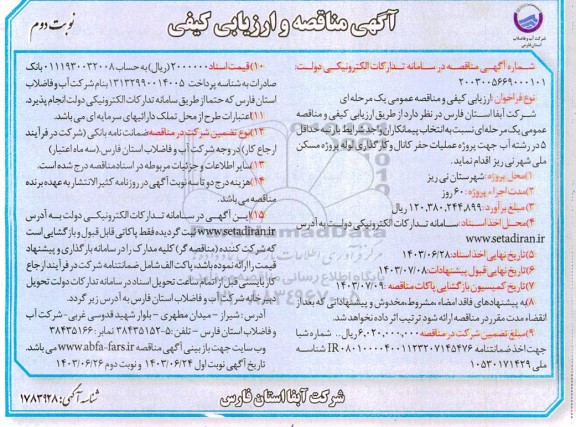 آگهی مناقصه و ارزیابی کیفی
نوبت دوم
شرکت آب و فاضلاب
استان فارس
شماره آگهی مناقصه در سامانه تدارکات الکترونیکی دولت:
۲۰۰۳۰۰۵۶۶۹۰۰۰۱۰۱
نوع فراخوان: ارزیابی کیفی و مناقصه عمومی یک مرحله ای
شرکت آب استان فارس در نظر دارد از طریق ارزیابی کیفی و مناقصه
عمومی یک مرحله ای نسبت به انتخاب پیمانکاران واجد شرایط با رتبه حداقل
۵ در رشته آب جهت پروژه عملیات حفر کانال و کارگذاری لوله پروژه مسکن
ملی شهر نی ریز اقدام نماید.
۱) محل پروژه: شهرستان نی ریز
۲) مدت اجراء پروژه: ۶۰ روز
۳) مبلغ برآورد: ۱۲۰,۳۸۰,۲۴۴,۸۹۹ ریال
۴) محل اخذ اسناد: سامانه تدارکات الکترونیکی دولت به آدرس
www.setadiran.ir
۵) تاریخ نهایی اخذ اسناد: ۱۴۰۳/۰۶/۲۸
۶) تاریخ نهایی قبول پیشنهادات: ۱۴۰۳/۰۷/۰۸
۷) تاریخ کمیسیون بازگشایی پاکات مناقصه: ۱۴۰۳/۰۷/۰۹
۸) به پیشنهادهای فاقد امضاء، مشروط، مخدوش و پیشنهاداتی که بعد از
انقضاء مدت مقرر در مناقصه ارائه شود ترتیب اثر داده نخواهد شد.
۹) مبلغ تضمین شرکت در مناقصه ۶,۰۲۰,۰۰۰,۰۰۰ ریال. شماره شبا
جهت اخذ ضمانتنامه IR۰۸۰۱۰۰۰۰۴۰۰۱۱۲۳۲۰۷۱۴۵۴۷۶ شناسه
ملی ۱۰۵۳۰۱۷۱۴۲۹
۱۰) قیمت اسناد ۲۰۰۰۰۰۰ (ریال) به حساب ۰۱۱۱۹۳۰۰۳۲۰۰۸ بانک
صادرات به شناسه پرداخت ۱۳۱۳۲۹۹۰۰۱۴۰۰۵ بنام شرکت آب و فاضلاب
استان فارس که حتما از طریق سامانه تدارکات الکترونیکی دولت انجام پذیرد.
۱۱) اعتبارات طرح از محل تملک دارائیهای سرمایه ای می باشد.
۱۲) نوع تضمین شرکت در مناقصه ضمانت نامه بانکی (شرکت در فرآیند
ارجاع کار) در وجه شرکت آب و فاضلاب استان فارس. (سه ماه اعتبار)
۱۳) سایر اطلاعات و جزئیات مربوطه در اسناد مناقصه درج شده است.
۱۴) هزینه درج دو تا سه نوبت آگهی در روزنامه کثیرالانتشار به عهده برنده
مناقصه می باشد.
۱۵) این آگهی در سامانه تدارکات الکترونیکی دولت به آدرس
www.setadiran.ir ثبت گردیده فقط پاکاتی قابل قبول و بازگشایی است
که شرکت کننده (مناقصه گر) کلیه مدارک را در سامانه بارگذاری و پیشنهاد
قیمت را ارائه نموده باشد، پاکت الف شامل ضمانتنامه شرکت در فرآیند ارجاع
کار بایستی قبل از اتمام ساعت تحویل اسناد در سامانه تدارکات دولت تحویل
دبیرخانه شرکت آب و فاضلاب استان فارس به آدرس زیر گردد.
آدرس: شیراز - میدان مطهری - بلوار شهید قدوسی غربی - شرکت آب
و فاضلاب استان فارس - تلفن: ۵-۳۸۴۳۵۱۵۲ نمابر: ۳۸۴۳۵۱۶۶
وب سایت جهت بازبینی آگهی مناقصه www.abfa-fars.ir می باشد.
تاریخ آگهی نوبت اول ۱۴۰۳/۰۶/۲۴ و نوبت دوم ۱۴۰۳/۰۶/۲۶
شرکت آبفا استان فارس
شناسه آگهی: ۱۷۸۳۹۲۸